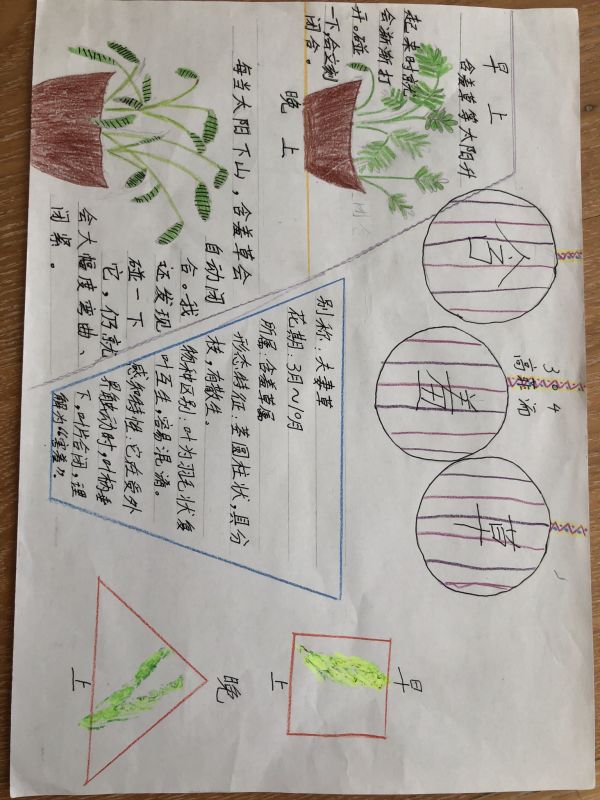 含羞草
304
早上
含羞草等太阳升
起来时就
会渐渐打
开。碰
一下,会立刻
闭合。
晚上
每当太阳下山，含羞草会
自动闭
合。我
还发现
碰一下
它，仍就
会大幅度弯曲、
闭紧。
别称：夫妻草
花期：3月~10月
所属：含羞草属
形态特征：茎圆柱状，具分
枝，有散生。
物种区别：叶为羽毛状复
叶互生，容易混淆。
特性：它在受外
界触动时，叶柄垂
下，叶片合闭，理
解为“害羞”。
早上
晚上